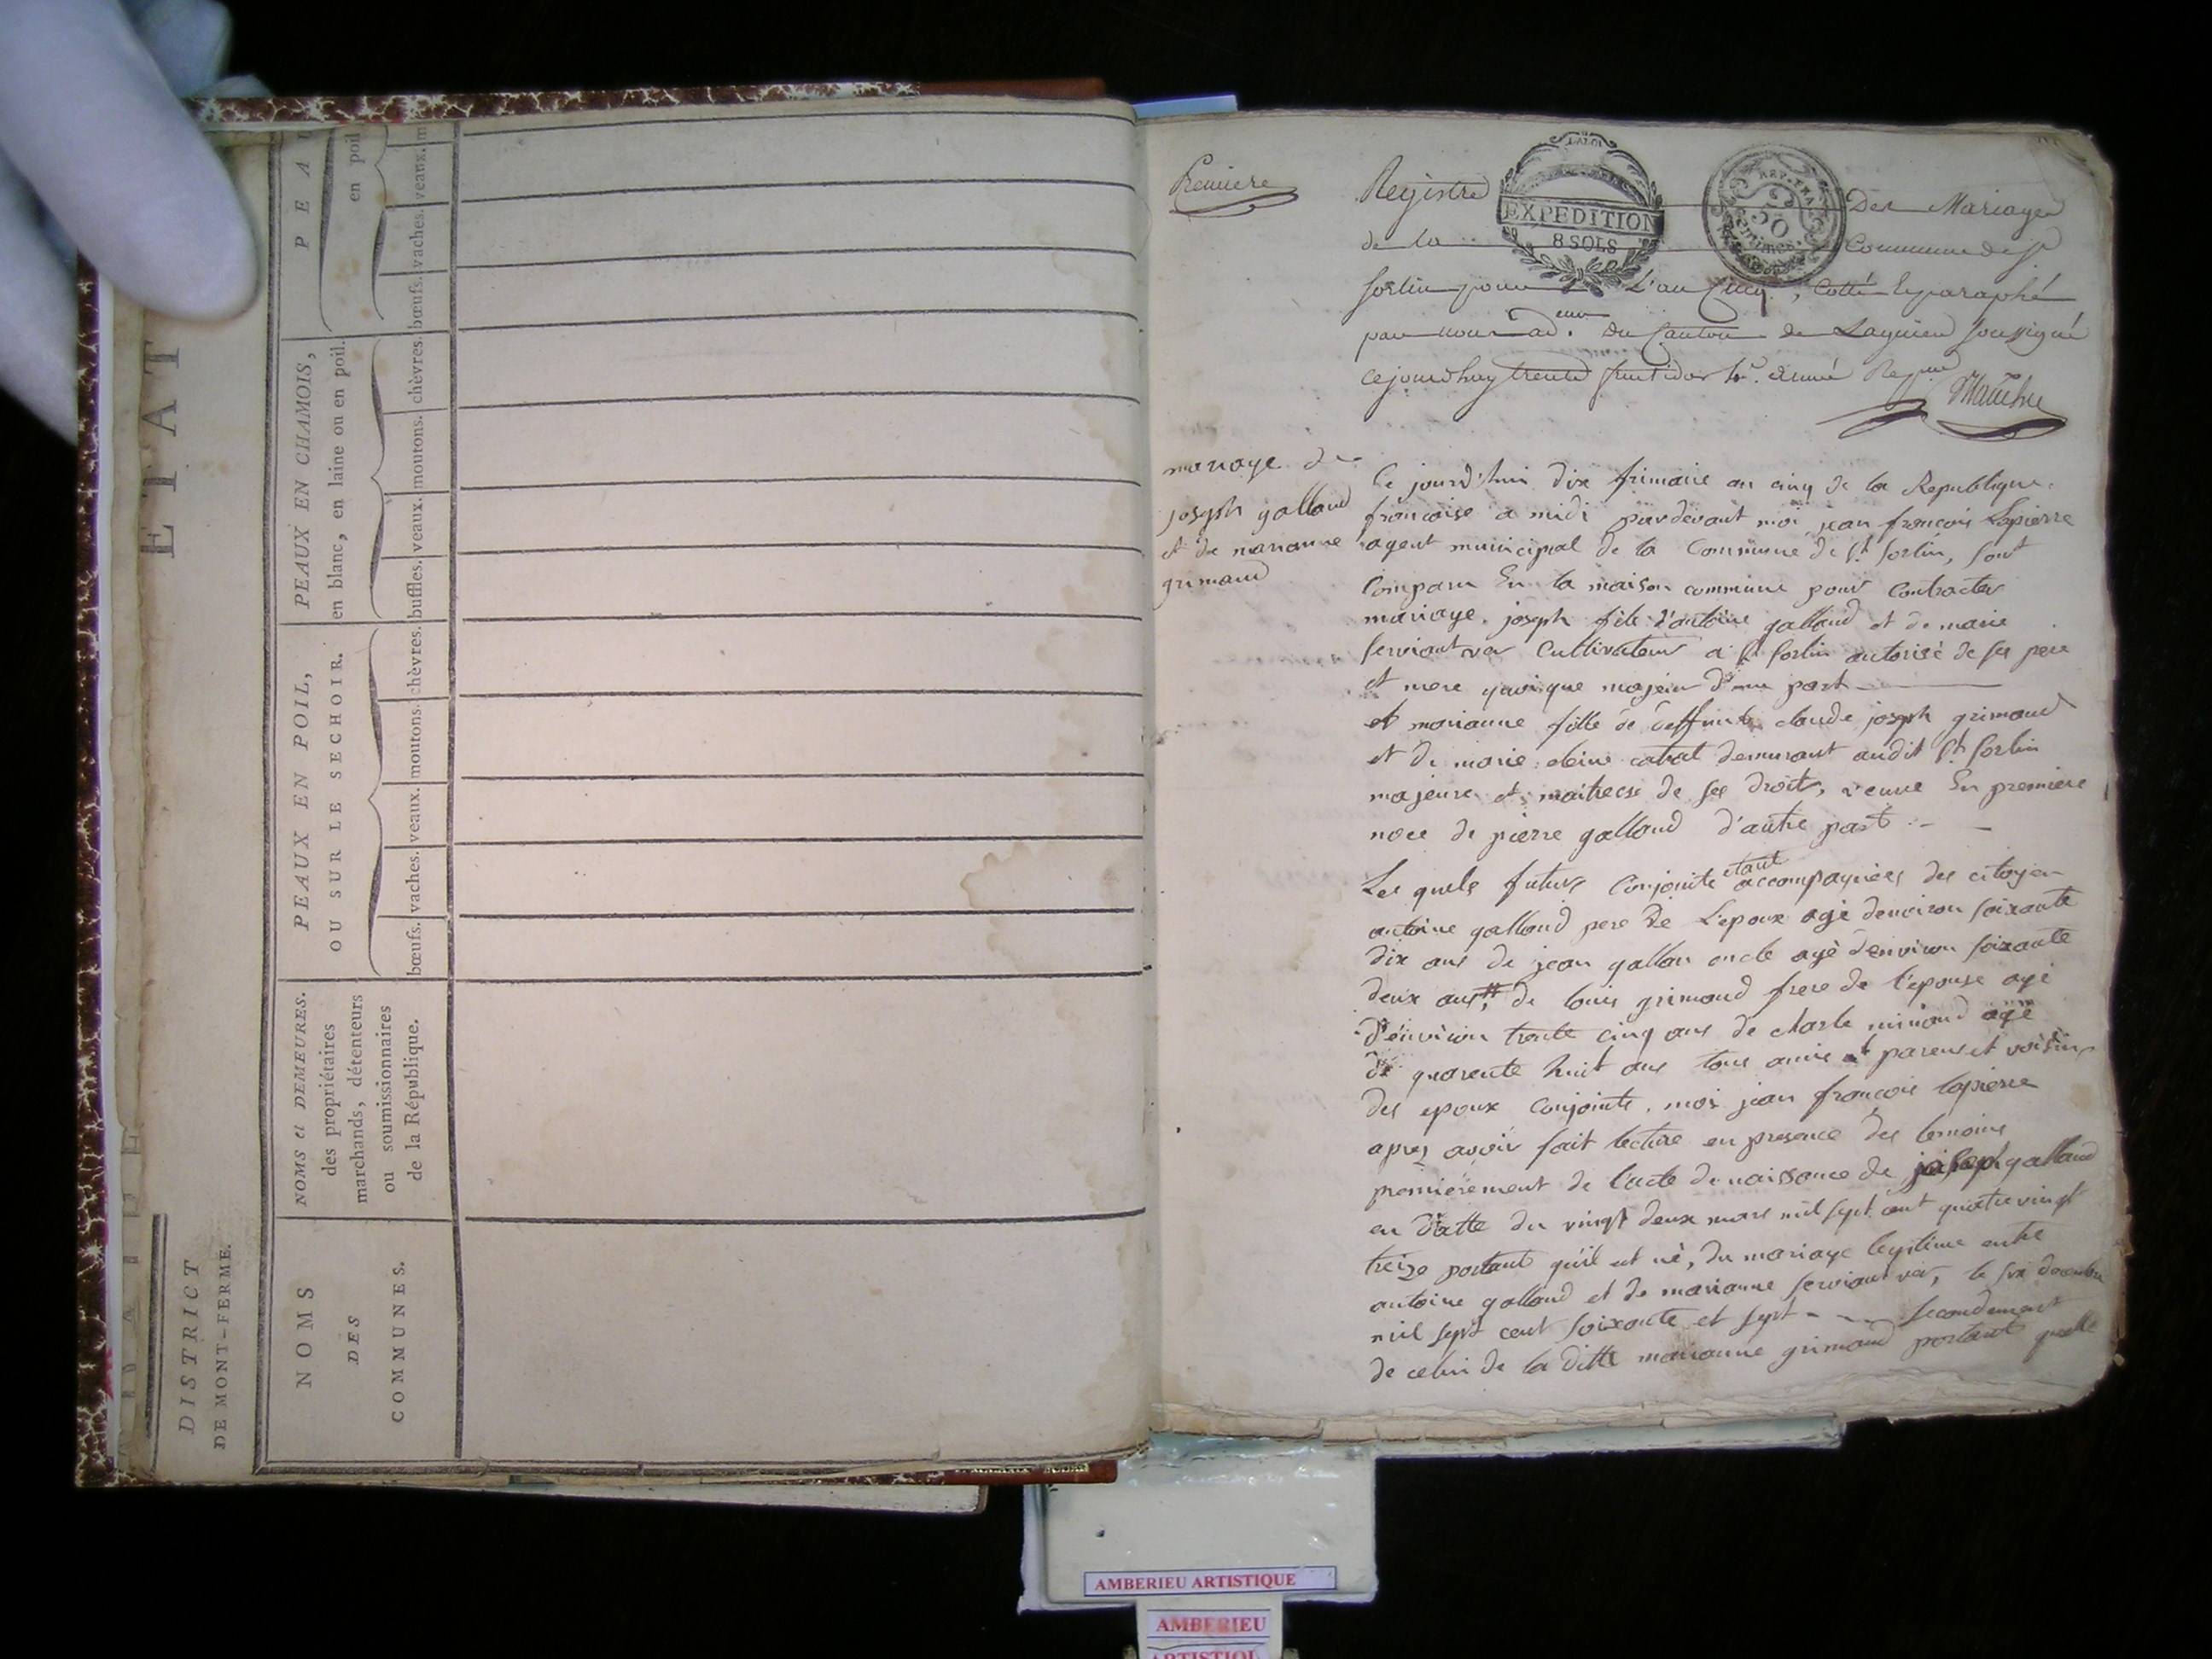 ETAT
DISTRICT
DE MONT-FERME.
NOMS
DES
COMMUNES.
NOMS et DEMEURES.
des propriétaires
marchands, détenteurs
ou soumissionnaires
de la République.
PEAUX EN POIL,
OU SUR LE SECHOIR.
bœufs. vaches. veaux. moutons. chèvres.
PEAUX EN CHAMOIS,
en blanc, en laine ou en poil.
buffles. veaux. moutons. chèvres.
PEAU
en poil
bœufs. vaches. veaux. m
Premiere
Registre Des Mariages
de la Commune de St
Sorlin pour L'an Cinq, Cotté & paraphé
par nous adeur. du Canton de Lagnieu soussigné
cejourdhuy trente fructidor 4e. année Repue
LA LOI
EXPEDITION
8 SOLS
REP. FRA.
50
Centimes.
mariage de
joseph galland
et de marianne
grimaud
Ce jourd'hui dix frimaire an cinq de la Republique
francoise a midi pardevant moi jean francois Lapierre
agent municipal de la Commune de St. sorlin, sont
Comparu En la maison commune pour Contracter
mariage. joseph fils d'antoine galland et de marie
cultivateur a St sorlin autorisé de ses pere
et mere quoique majeur d'une part
et marianne fille de deffunt claude joseph grimaud
et de marie cabat demurant audit St Sorlin
majeure et maitresse de ses droits, veuve En premiere
noce de pierre galland d'autre part
Les quels futurs Conjoints etant accompagnies des citoyen
antoine galland pere de L'epoux agé denviron soixante
dix ans de jean gallan oncle agé d'environ soixante
deux ans, de louis grimaud frere de l'epouse agé
d'environ trente cinq ans de charle minaud agé
de quarente huit ans tous amis et parens et voisins
des epoux conjoints. moi jean francois lapierre
apres avoir fait lecture en presence des temoins
premierement de l'acte de naissance de joseph galland
en datte du vingt deux mars mil sept cent quatre vingt
treize portant qu'il est né, du mariage legitime entre
antoine galland et de marianne le six decembre
mil sept cent soixante et sept - - secondement
de celui de la ditte marianne grimaud portant quelle
AMBERIEU ARTISTIQUE
AMBERIEU
ARTISTIQU